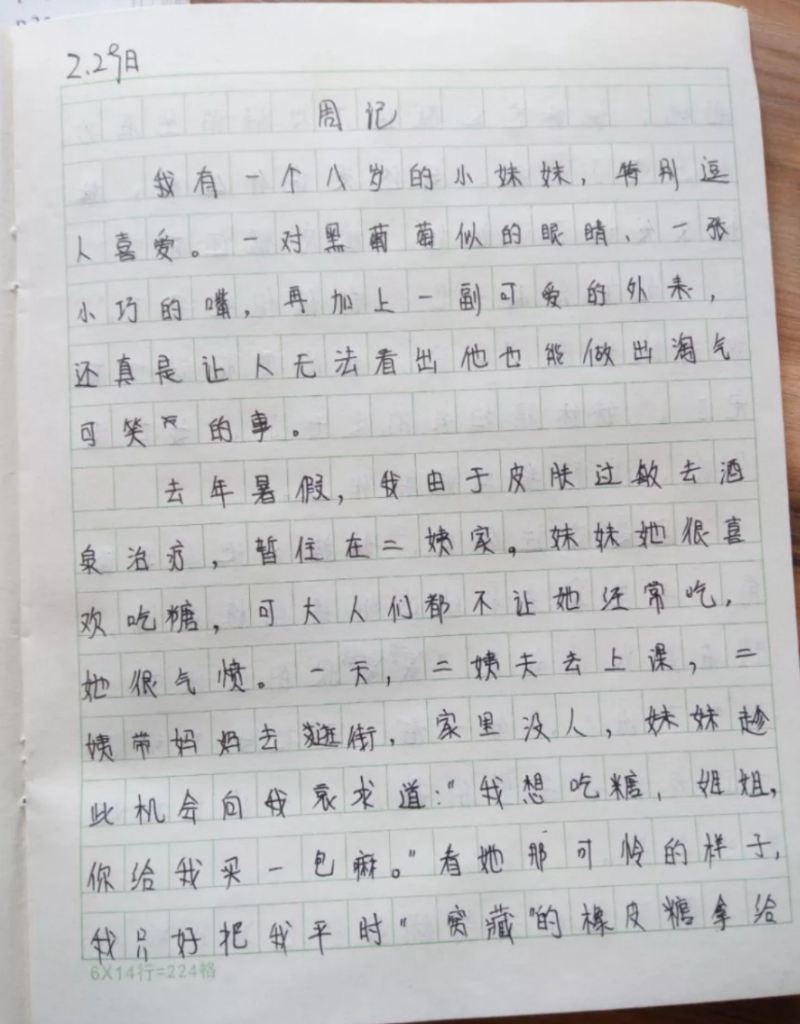 2.29日
周记
我有一个八岁的小妹妹，特别逗
人喜爱。一对黑葡萄似的眼睛、一张
小巧的嘴，再加上一副可爱的外表，
还真是让人无法看出他也能做出淘气
可笑的事。
去年暑假，我由于皮肤过敏去酒
泉治疗，暂住在二姨家。妹妹她很喜
欢吃糖，可大人们都不让她经常吃，
她很气愤。一天，二姨夫去上课，二
姨带妈妈去逛街，家里没人，妹妹趁
此机会向我哀求道："我想吃糖，姐姐，
你给我买一包嘛。"看她那可怜的样子，
我只好把我平时"窝藏"的橡皮糖拿给
6X14行=224格